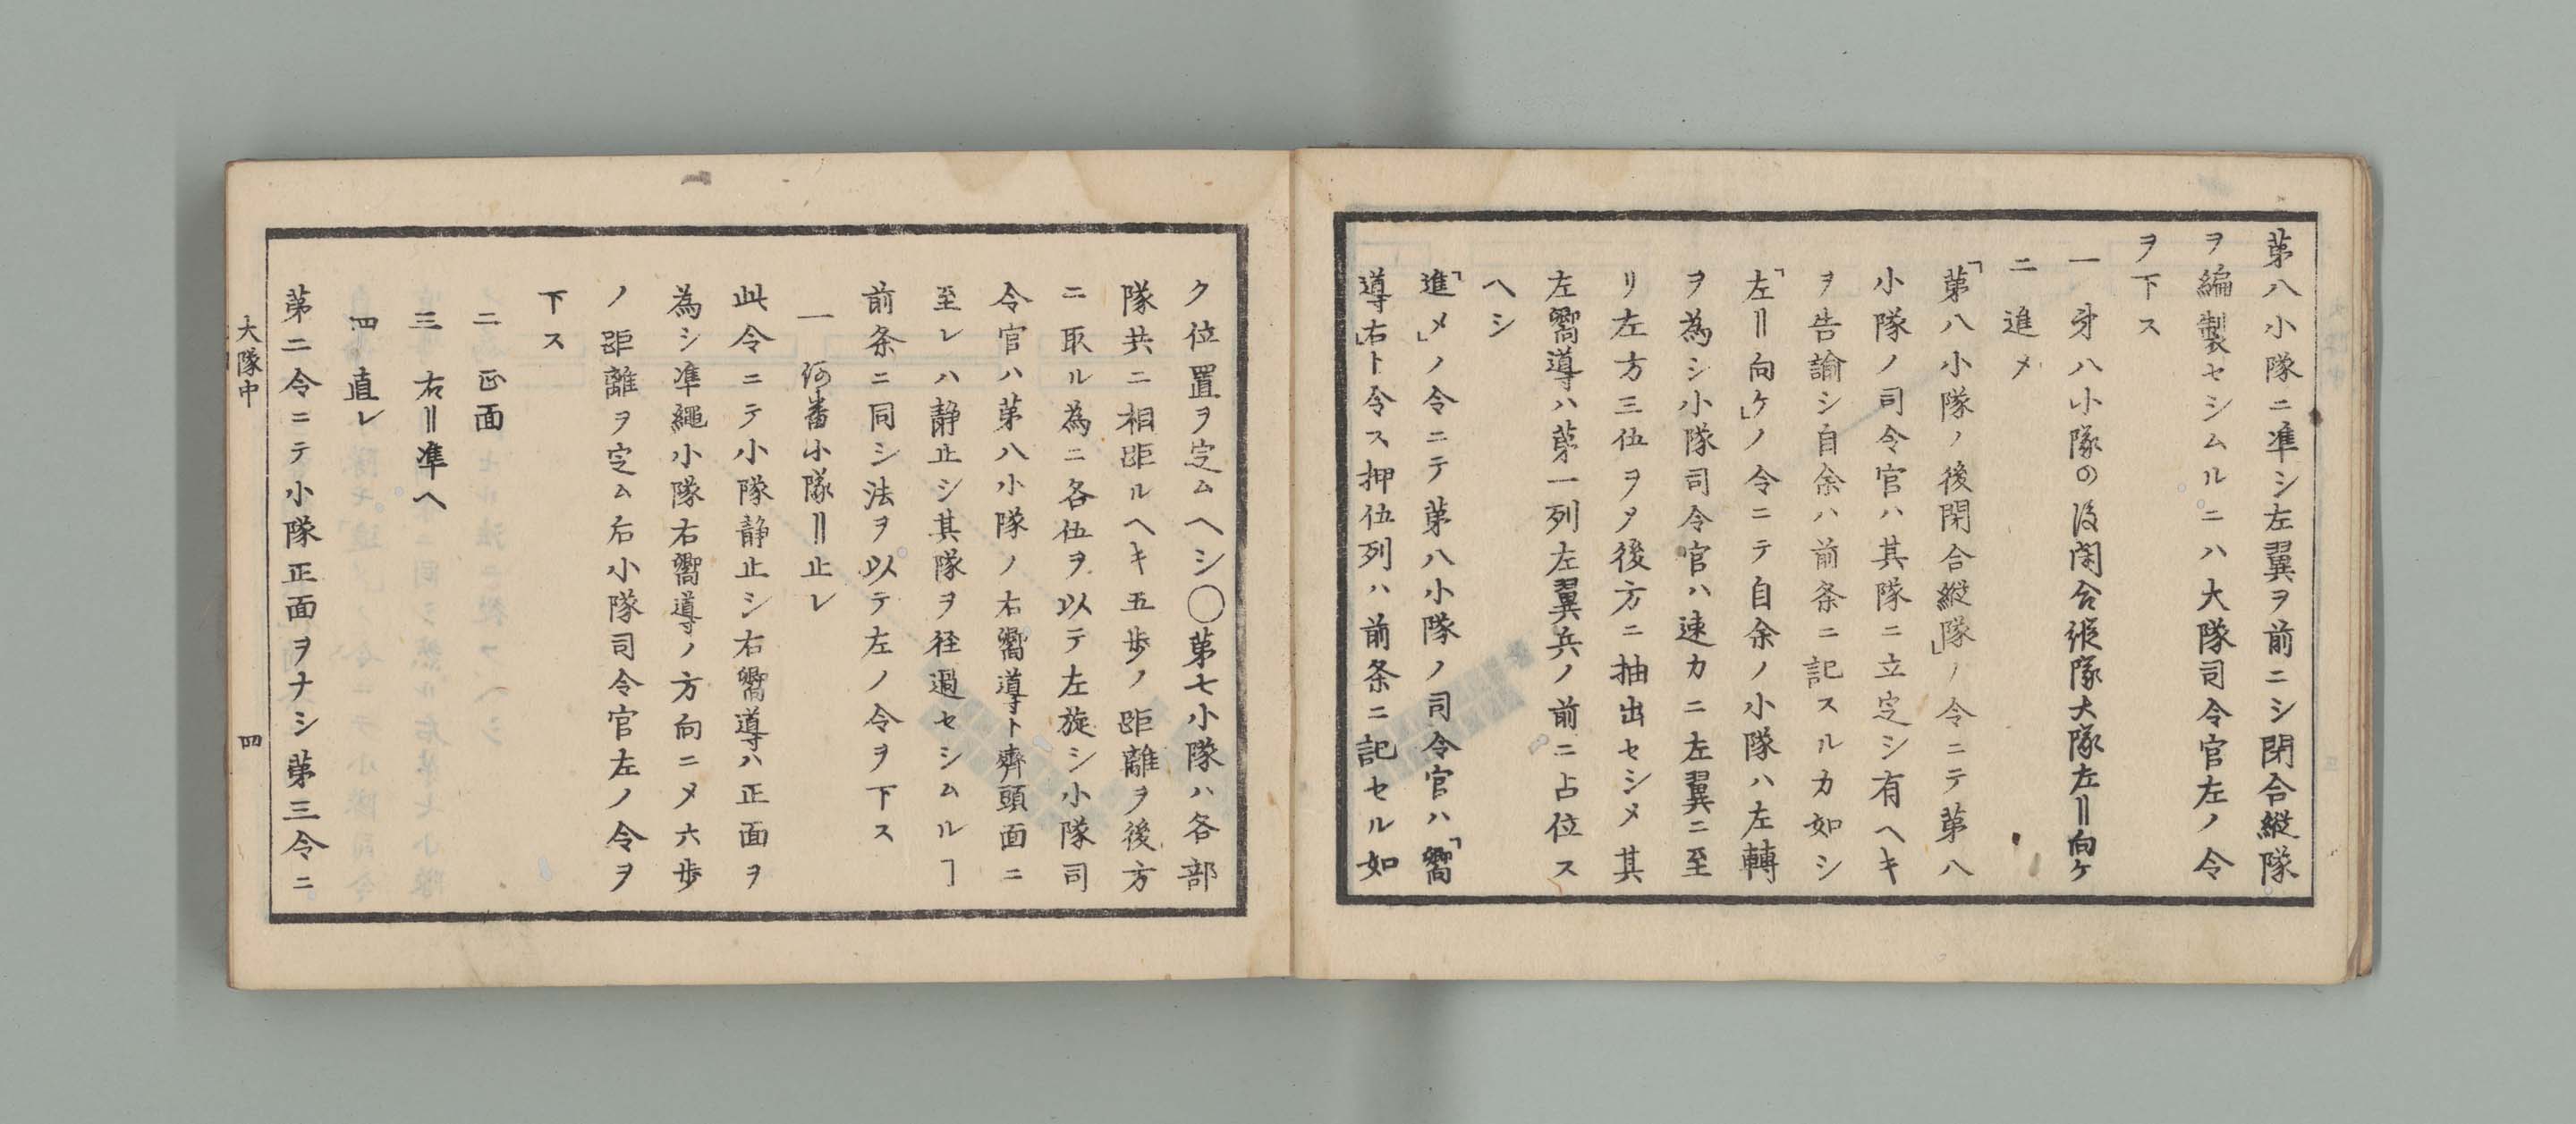 第八小隊ニ準シ左翼ヲ前ニシ閉合縦隊
ヲ編製セシムルニハ大隊司令官左ノ令
ヲ下ス
一 第八小隊の後閉合縦隊大隊左‖向ケ
二 進メ
「第八小隊ノ後閉合縦隊」ノ令ニテ第八
小隊ノ司令官ハ其隊ニ立定シ有ヘキ
ヲ告諭シ自余ハ前条ニ記スルカ如シ
「左‖向ケ」ノ令ニテ自余ノ小隊ハ左轉
ヲ為シ小隊司令官ハ速カニ左翼ニ至
リ左方三伍ヲメ後方ニ抽出セシメ其
左嚮導ハ第一列左翼兵ノ前ニ占位ス
ヘシ
「進メ」ノ令ニテ第八小隊ノ司令官ハ「嚮
導右」ト令ス押伍列ハ前条ニ記セル如
ク位置ヲ定ムヘシ〇第七小隊ハ各部
隊共ニ相距ルヘキ五歩ノ距離ヲ後方
ニ取ル為ニ各伍ヲ以テ左旋シ小隊司
令官ハ第八小隊ノ右嚮導ト齊頭面ニ
至レハ静止シ其隊ヲ径過セシムルヿ
前条ニ同シ法ヲ以テ左ノ令ヲ下ス
一 何番小隊‖止レ
此令ニテ小隊静止シ右嚮導ハ正面ヲ
為シ準縄小隊右嚮導ノ方向ニメ六歩
ノ距離ヲ定ム后小隊司令官左ノ令ヲ
下ス
二 正面
三 右‖準ヘ
四 直レ
第二令ニテ小隊正面ヲナシ第三令ニ
大隊中 四